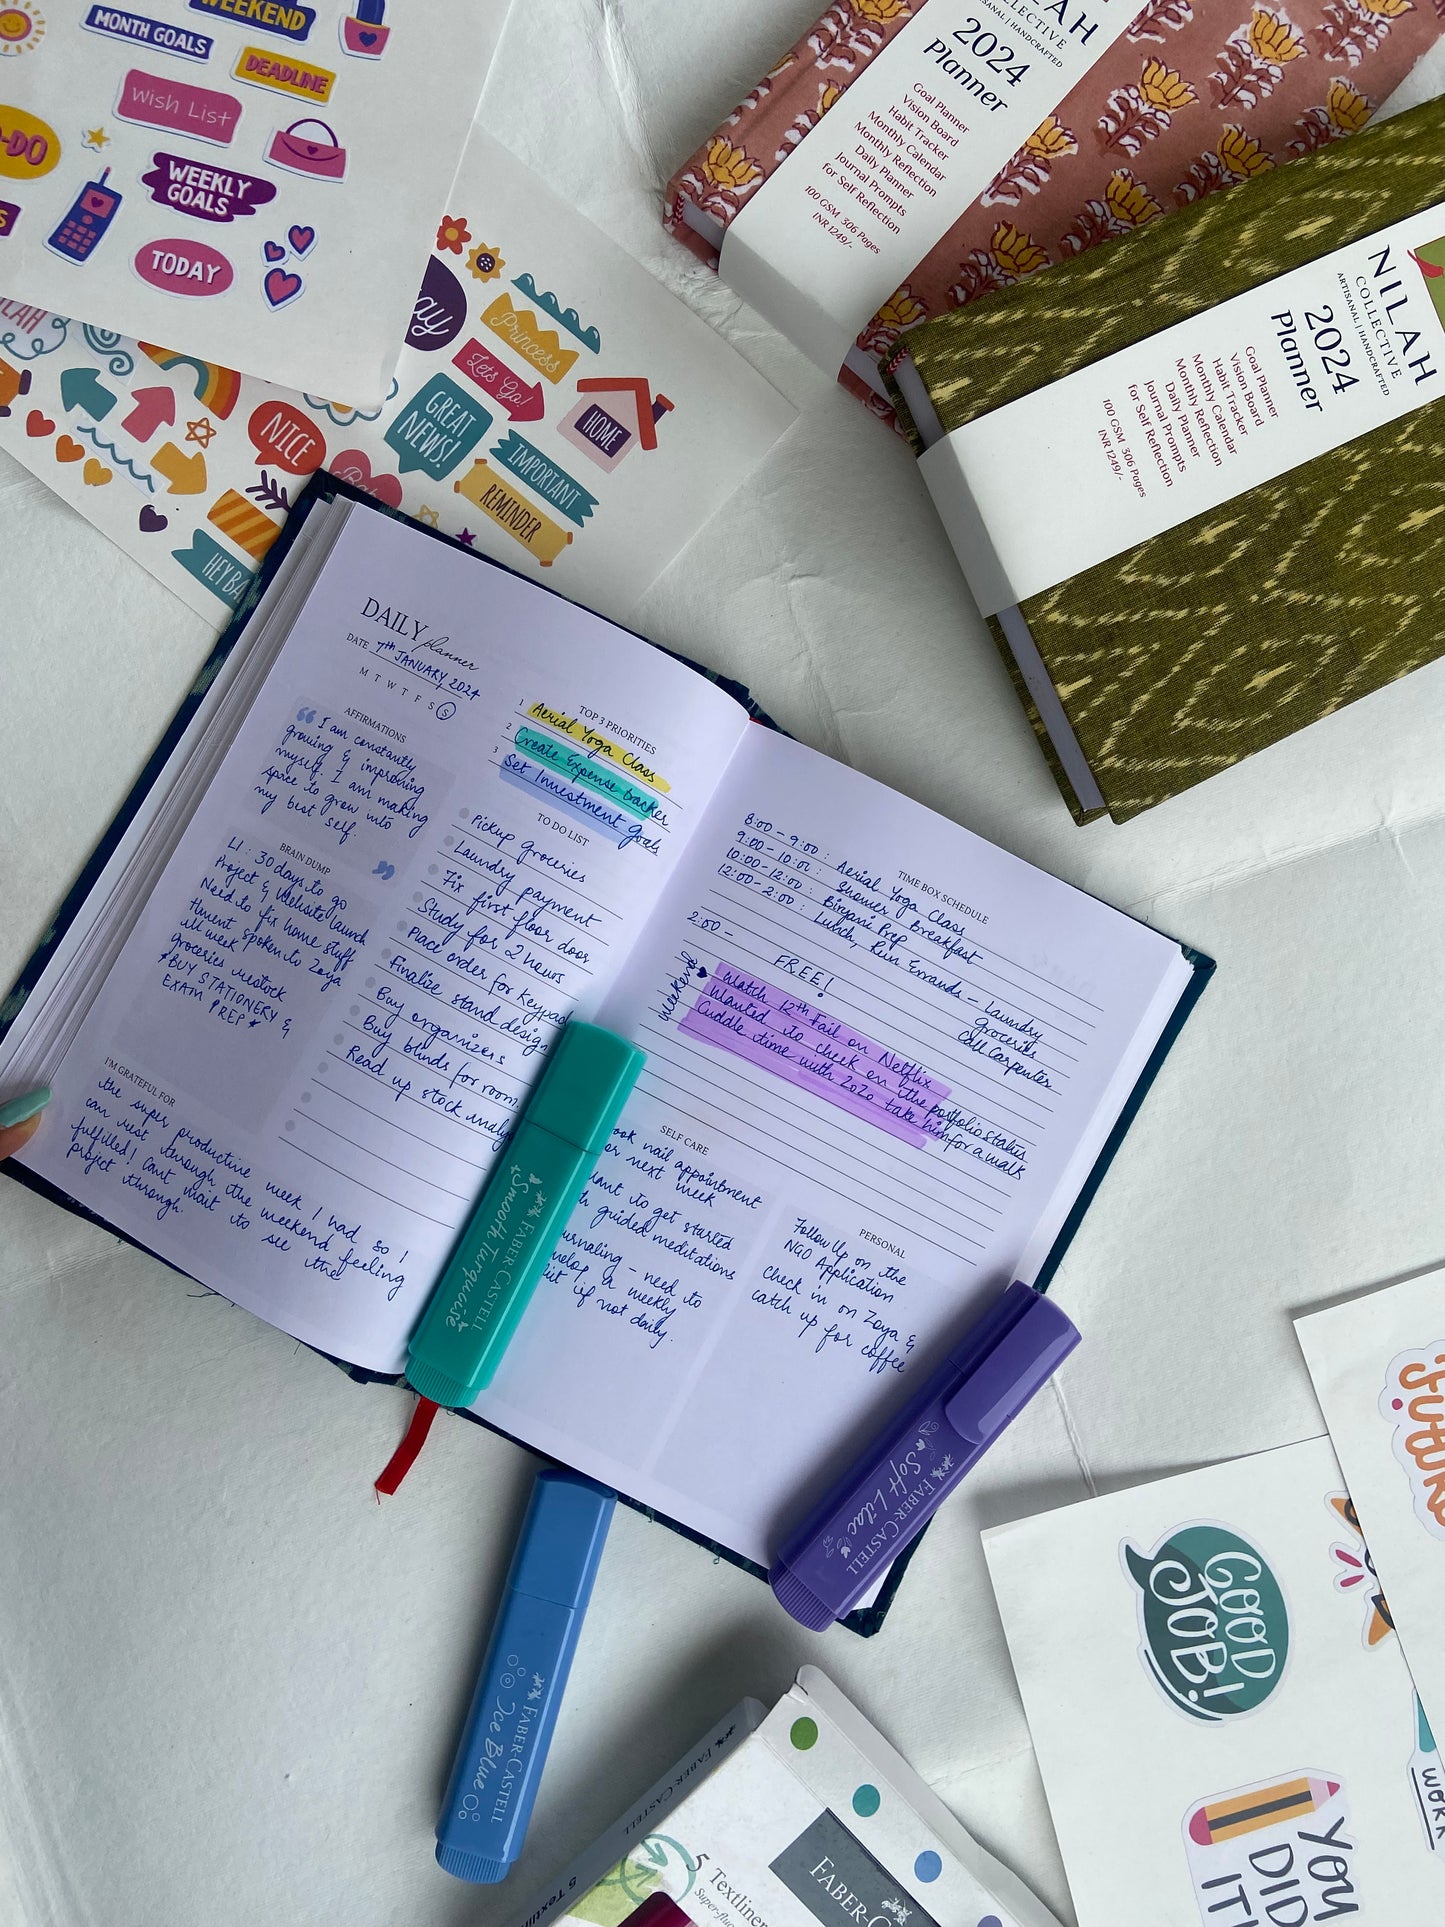 WEEKEND
MONTH GOALS
DEADLINE
Wish List
WEEKLY
GOALS
TODAY
Princess
Let's Go!
GREAT
NEWS!
HOME
NICE
IMPORTANT
REMINDER
NILAH
COLLECTIVE
ARTISANAL | HANDCRAFTED
2024
Planner
Goal Planner
Vision Board
Habit Tracker
Monthly Calendar
Monthly Reflection
Daily Planner
Journal Prompts
for Self Reflection
100 GSM 306 Pages
INR 1249/-
NILAH
COLLECTIVE
ARTISANAL | HANDCRAFTED
2024
Planner
Goal Planner
Vision Board
Habit Tracker
Monthly Calendar
Monthly Reflection
Daily Planner
Journal Prompts
for Self Reflection
100 GSM 306 Pages
INR 1249/-
DAILY planner
DATE 7th JANUARY, 2024
M T W T F S S
AFFIRMATIONS
I am constantly
growing & improving
myself. I am making
space to grow into
my best self.
BRAIN DUMP
LI: 30 days to go
Project & Website launch
Need to fix home stuff
Haven't spoken to Zoya
all week
groceries restock
*BUY STATIONERY &
EXAM PREP*
I'M GRATEFUL FOR
the super productive week I had so I
can rest through the weekend feeling
fulfilled! Cant wait to see the
project through.
TOP 3 PRIORITIES
1 Aerial Yoga Class
2 Create Expense tracker
3 Set Investment Goals
TO DO LIST
Pickup groceries
Laundry payment
Fix first floor door
Study for 2 hours
Place order for Keypad
Finalize stand design
Buy organizers
Buy blinds for room
Read up stock
TIME BOX SCHEDULE
8:00 - 9:00 : Aerial Yoga Class
9:00 - 10:00 : Shower Breakfast
10:00 - 12:00 : Biryani Prep
12:00 - 2:00 : Lunch, Run Errands - Laundry
groceries
Call Carpenter
2:00 - FREE!
weekend
Watch 12th Fail on Netflix
Wanted to check on the portfolio status
Cuddle time with Zozo take him for a walk
SELF CARE
nail appointment
next week
to get started
guided meditations
need to
a weekly
if not daily.
PERSONAL
Follow Up on the
NGO Application
Check in on Zoya &
catch up for coffee
FABER-CASTELL
Smooth Turquoise
FABER-CASTELL
Soft Lilac
FABER-CASTELL
Ice Blue
FABER-CASTELL
5 Textliner
GOOD
JOB!
WORK
YOU
DID
IT!